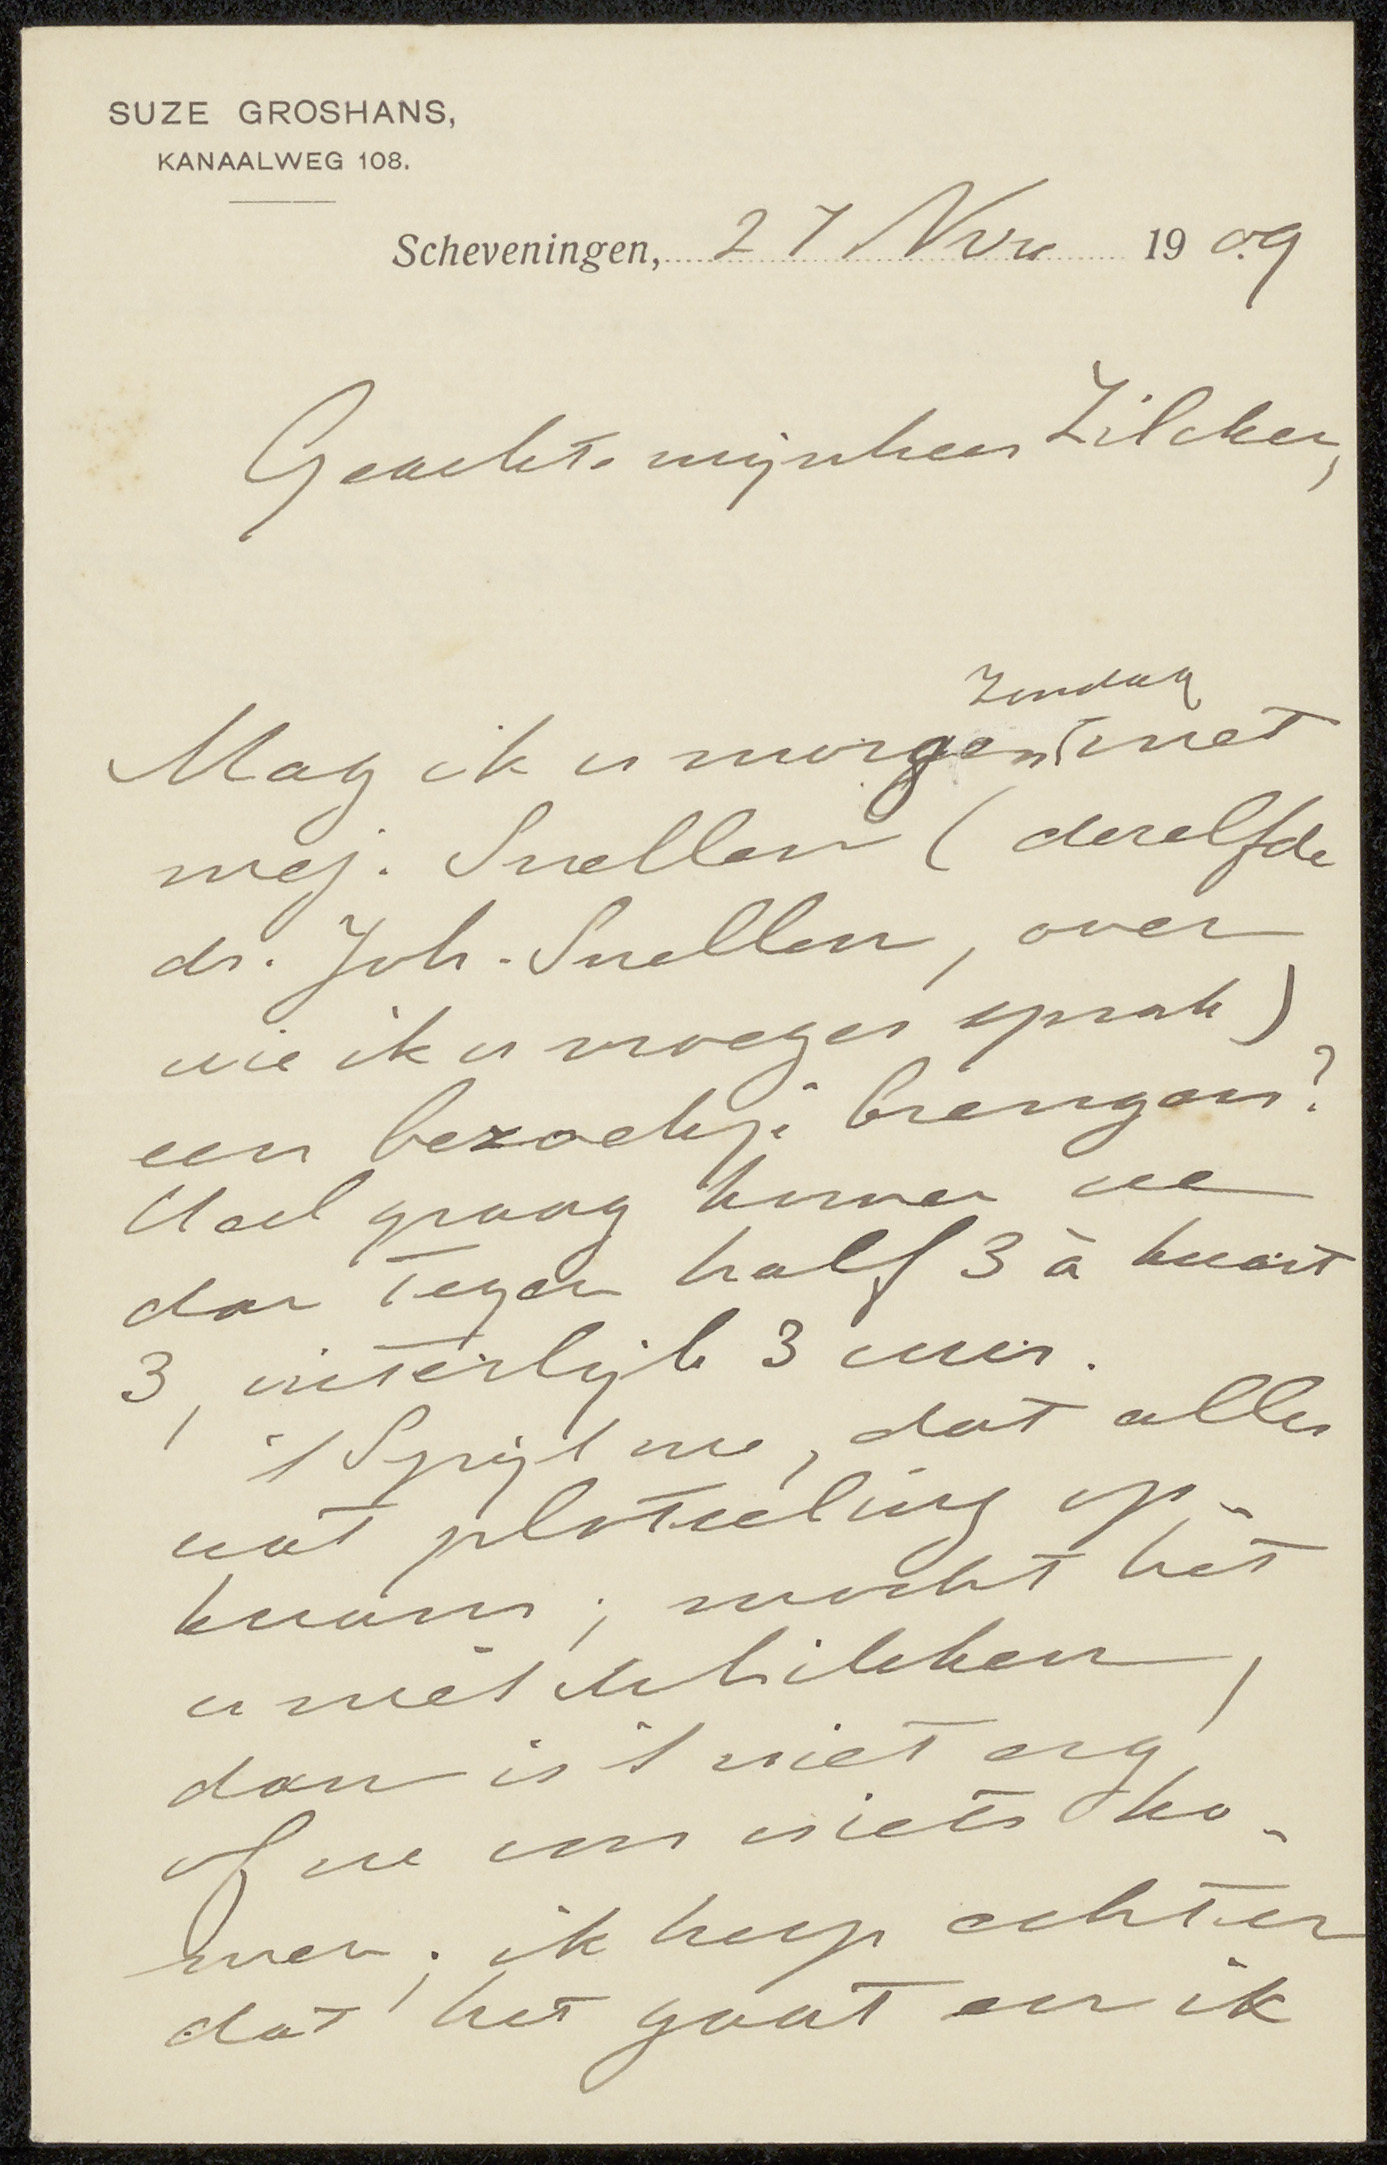 SUZE GROSHANS,
KANAALWEG 108.
Scheveningen, 27 Nov 1909
Geachte mijnheer Zilcken,
Zondag
Mag ik u morgen met
mej. Snellen (dezelfde
dr. Joh. Snellen, over
wie ik u vroeger sprak)
een bezoekje brengen?
Heel graag komen we
dan tegen half 3 à kwart
3, uiterlijk 3 uur.
't Spijt me, dat alles
wat plotseling op-
kwam; mocht het
u niet schikken,
dan is 't niet erg
of we ons niets ko-
men; ik hoop echter
dat het gaat en ik